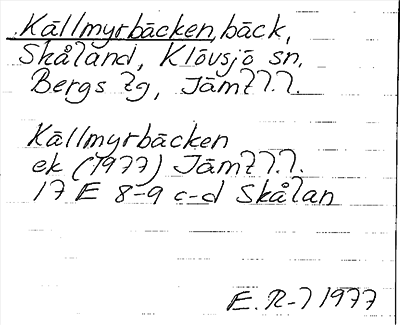 Källmyrbäcken, bäck,
Skåland, Klövsjö sn,
Bergs tg, Jämtl.l.
Källmyrbäcken
ek (1977) Jämtl.l.
17 E 8-9 c-d Skålan
E. R-l 1977